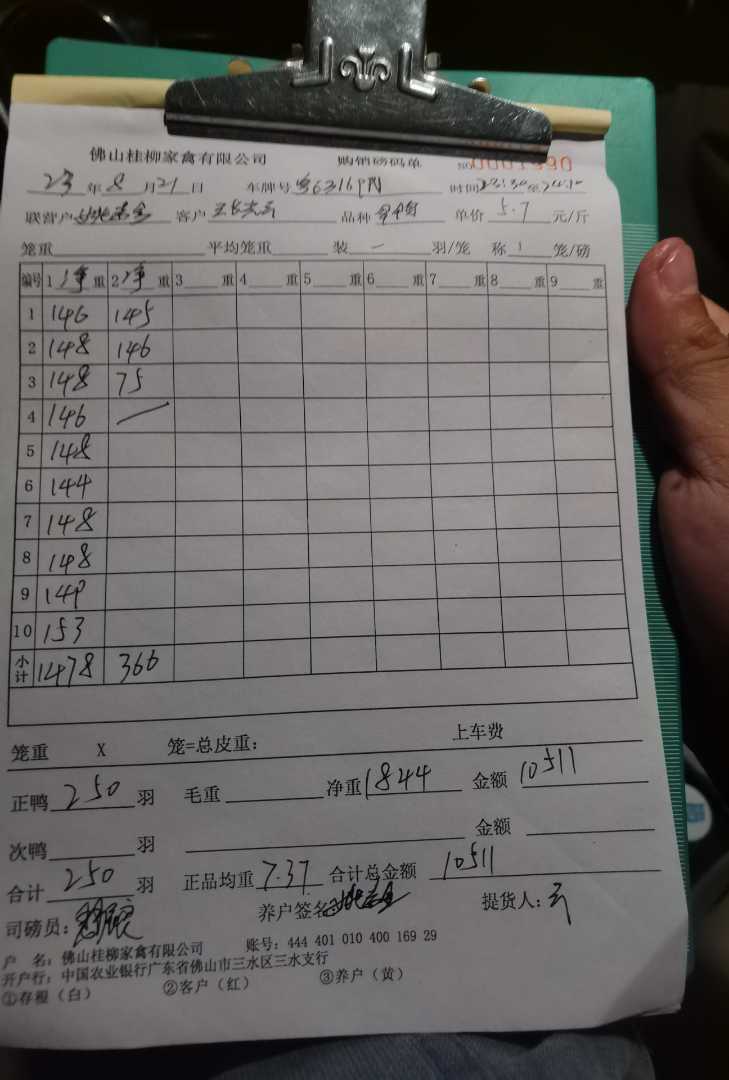 佛山桂柳家禽有限公司 购销磅码单 NO 0001990
23年8月21日 车牌号 63169 时间 23:30至24:10
联营户 客户 品种 单价 5.7 元/斤
笼重 平均笼重 装 一 羽/笼 称 1 笼/磅
编号 1 净 重 2 净 重 3 重 4 重 5 重 6 重 7 重 8 重 9 重
1 146 145
2 148 146
3 148 75
4 146
5 148
6 144
7 148
8 148
9 149
10 153
小计 1478 366
笼重 X 笼=总皮重: 上车费
正鸭 250 羽 毛重 净重 1844 金额 10511
次鸭 羽 金额
合计 250 羽 正品均重 7.37 合计总金额 10511
司磅员: 养户签名 提货人:
户 名: 佛山桂柳家禽有限公司 账号: 444 401 010 400 169 29
开户行: 中国农业银行广东省佛山市三水区三水支行
①存根（白） ②客户（红） ③养户（黄）